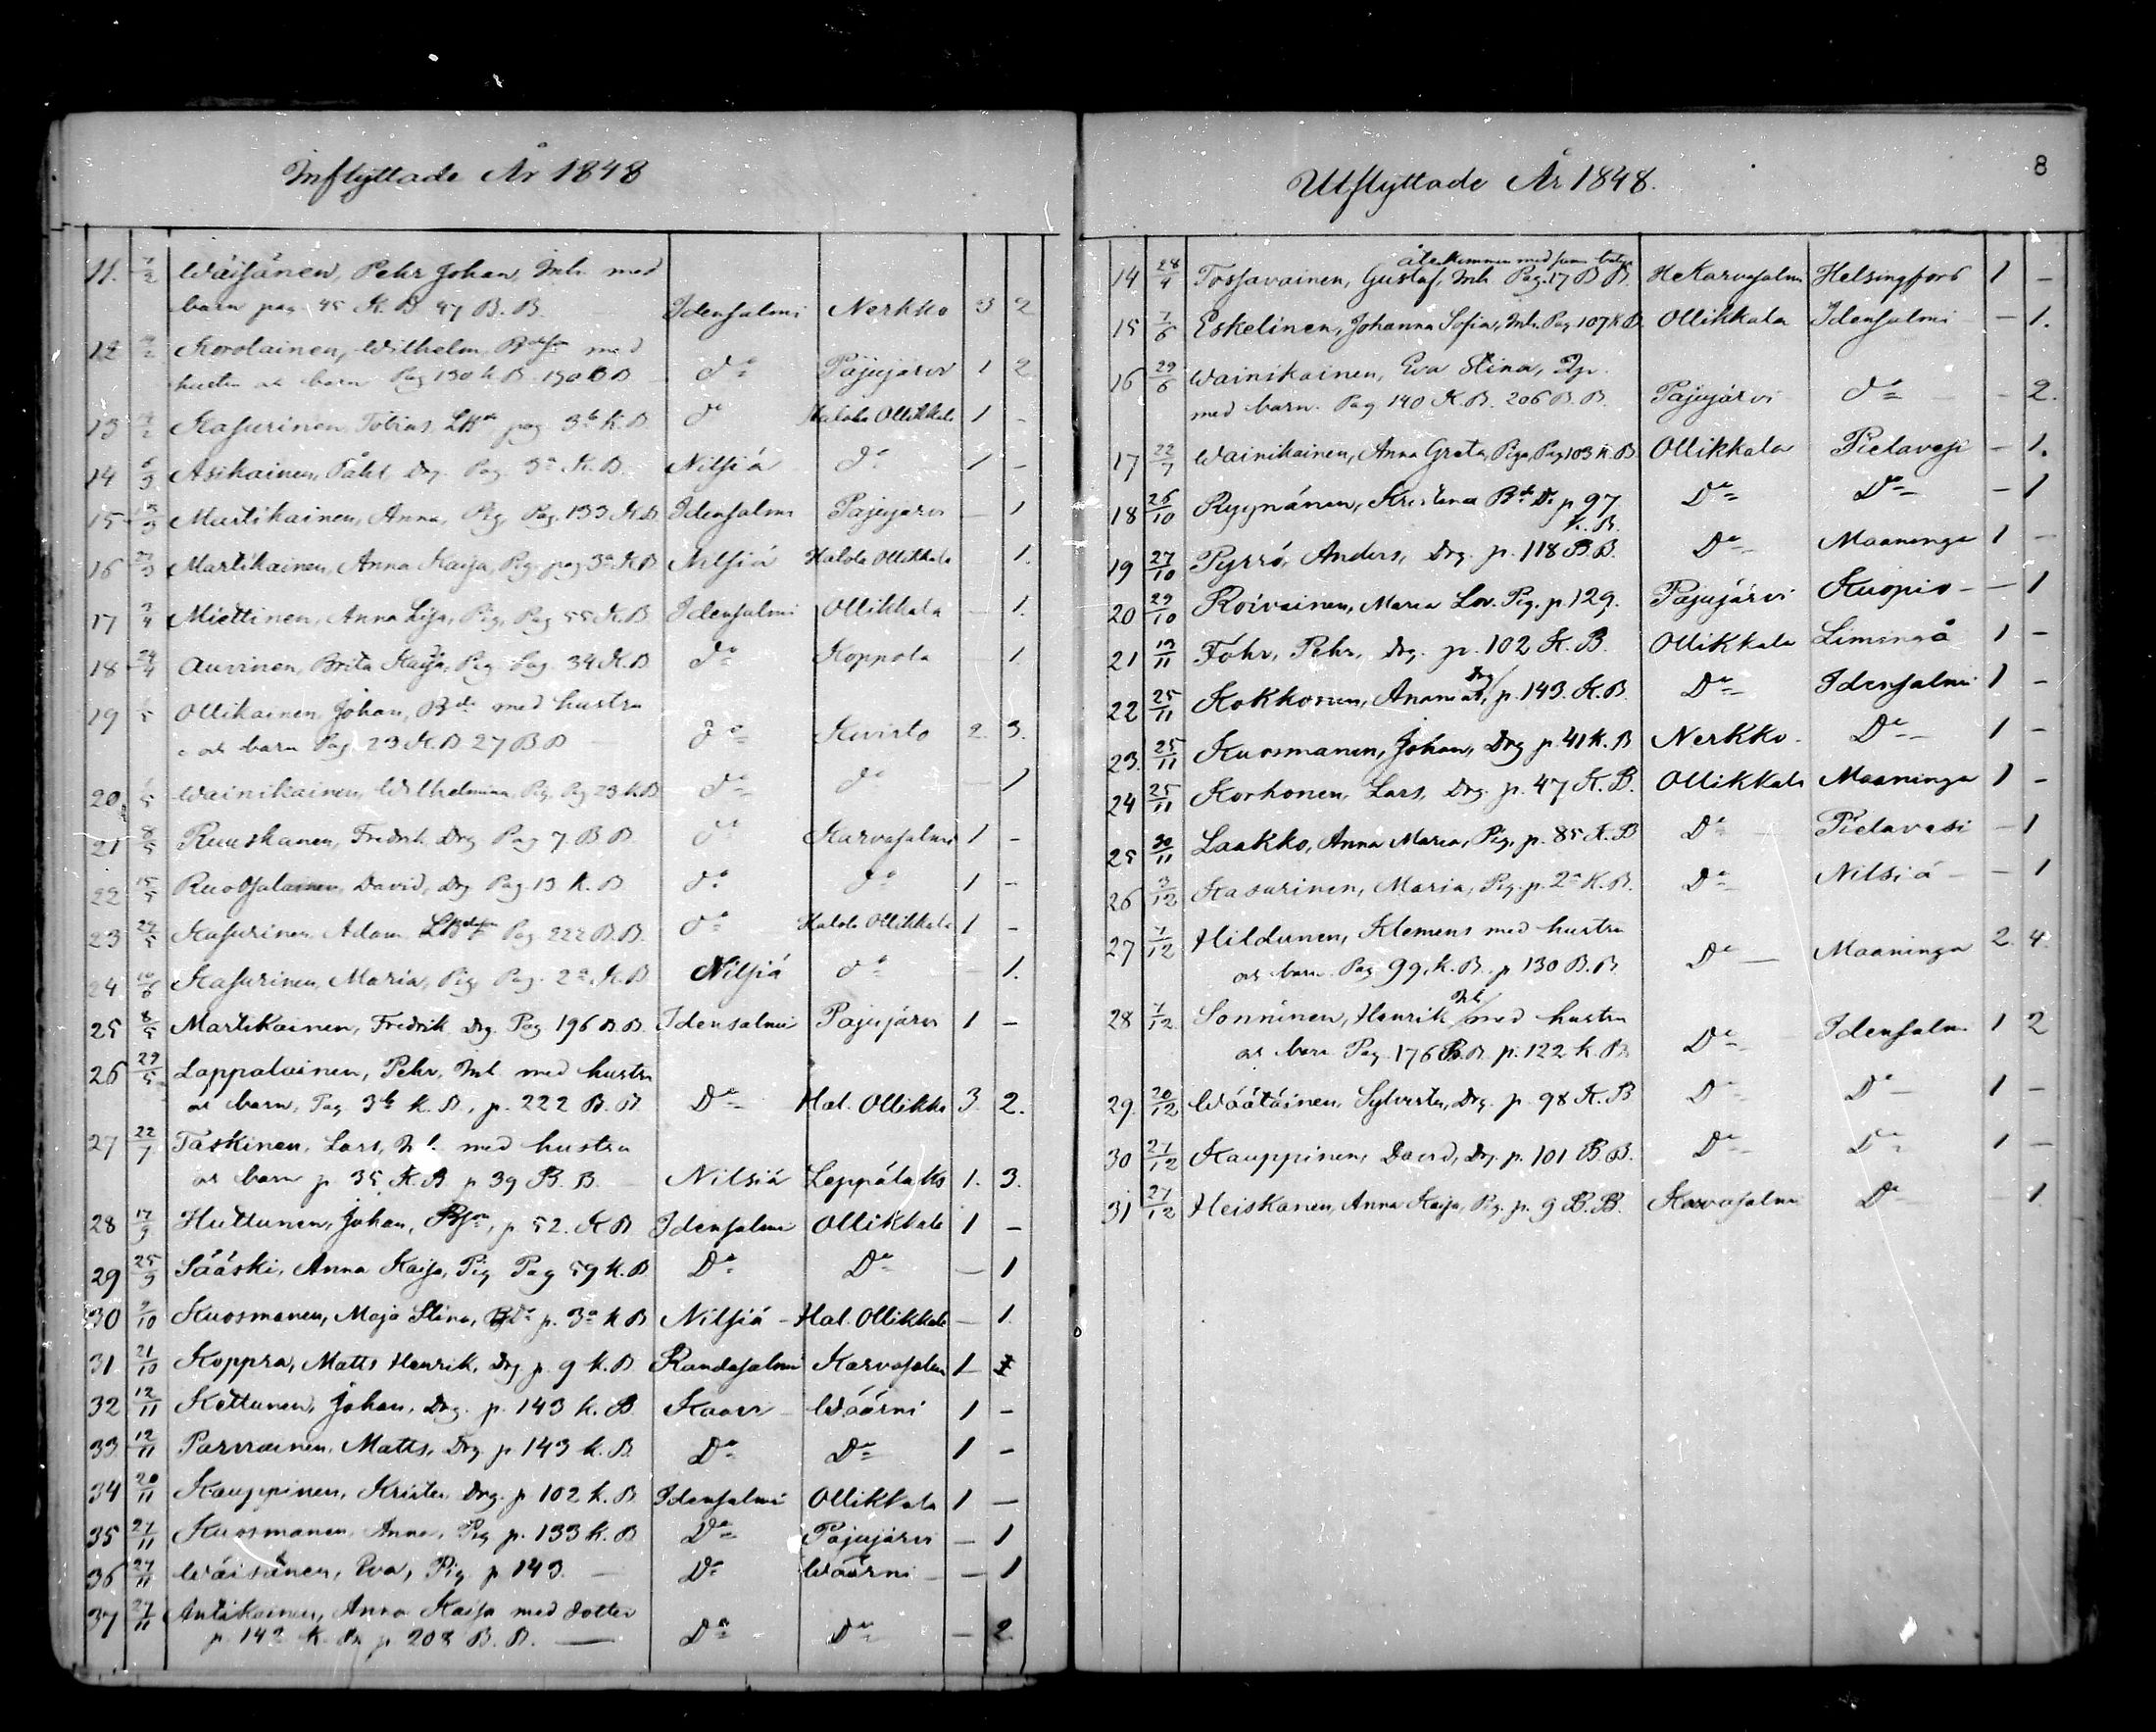 Inflyttade År 1848
11. 7/2 Wäisänen, Pehr Johan, Inh. med
barn pag. 45 K. B. 47 B. B. Idensalmi Nerkko 3 2
12 Korolainen, Wilhelm, med
hustru o. barn Pag 130 K. B. 190 B B Do Pajujärvi 1 2
13 Kasurinen, Tobias, pag 3b K. B. Do Halola Ollikkala 1 -
14 5/3 Asikainen, Påhl Drg. Pag. 3a K. B. Nilsiä Do 1 -
15 Martikainen, Anna, Pig. Pag. 133 K. B Idensalmi Pajujärvi - 1
16 Martikainen, Anna Kaisa, Pig. pag 3a K B Nilsiä Halola Ollikkala 1.
17 3/4 Miettinen, Anna Lisa, Pig. Pag 55 K. B. Idensalmi Ollikkala - 1.
18 Auvinen, Brita Kaisa, Pig Pag 34 K. B. Do Koppola - 1.
19 1/5 Ollikainen, Johan, Bde med hustru
o barn Pag. 23 K. B 27 B B Do Kuvisto 2. 3.
20. 1/5 Wainikainen, Wilhelmina, Pig. Pag 23 K B Do Do - 1
21 8/5 Ruuskanen, Fredrik Drg Pag 7 B B. Do Karvasalmi 1 -
22 15/5 Ruotsalainen, David, Drg Pag. 13 K. B. Do Do 1 -
23 29/5 Kasurinen, Adam Pag. 222 B. B. Do Halola Ollikkala 1 -
24. 10/6 Kasurinen, Maria, Pig, Pag. 2a. K. B Nilsiä Do - 1.
25 8/5 Martikainen, Fredrik Drg. Pag 196 B. B. Idensalmi Pajujärvi 1 -
26 29/5 Lappalainen, Pehr, Inh. med hustru
o barn, Pag 3b K. B., p. 222 B. B. Do Hal. Ollikka 3. 2.
27 22/7 Taskinen, Lars, Inh. med hustru
o barn p 35. K. B p 39 B. B. Nilsiä Leppälaks 1. 3.
28 17/9 Huttunen, Johan, p. 52. K B Idensalmi Ollikkala 1 -
29 25/9 Sääski, Anna Kaisa, Pig Pag 59 K. B Do Do - 1
30 9/10 Kuosmanen, Maja Stina, p. 3a K B Nilsiä Hal. Ollikkala - 1.
31. 21/10 Koppra, Matts Henrik, Drg p. 9 K. B Randasalmi Karvasalmi 1
32 12/11 Kettunen, Johan, Drg. p. 143 K. B. Kaavi Wäärni 1 -
33. 12/11 Parviainen, Matts, Drg p. 143 K. B. Do Do 1 -
34 20/11 Kauppinen, Krister Drg. p 102 K. B. Idensalmi Ollikkala 1 -
35 27/11 Kuosmanen, Anna, Pig p. 133 K. B Do Pajujärvi - 1
36 27/11 Wäisänen, Eva, Pig. p 143. Do Wäärni - 1
37 27/11 Antikainen, Anna Kaisa med dotter
p. 142 K. B. p. 208 B. B. Do Do - 2
8
Utflyttade År 1848.
återkommen med samma betyg
14 28/4 Tossavainen, Gustaf, Inh. Pag. 17 B B. Karvasalmi Helsingfors 1 -
15 7/6 Eskelinen, Johanna Sofia, Inh. Pag 107 K B. Ollikkala Idensalmi - 1.
16 29/6 Wainikainen, Eva Stina,
med barn. Pag 140 K. B. 206 B. B. Pajujärvi Do - 2.
17 22/7 Wainikainen, Anna Greta, Piga, Pag 103 K. B Ollikkala Pielavesi - 1.
18 26/10 Ryynänen, Kristina p 97
K. B. Do Do - 1
19 27/10 Pyrrö, Anders, Drg. p. 118 B. B. Do Maaninga 1 -
20 29/10 Roivainen, Maria Lov. Pig. p. 129. Pajujärvi Kuopio - 1
21 13/11 Fohr, Pehr, Drg. p. 102 K. B. Ollikkala Limingå 1 -
22 25/11 Kokkonen, Ananias, Drg p. 143. K. B. Do Idensalmi 1 -
23. 25/11 Kuosmanen, Johan, Drg p. 41 K. B Nerkko. Do 1 -
24 25/11 Korhonen, Lars, Drg. p. 47 K. B. Ollikkala Maaninga 1 -
25 30/11 Laakko, Anna Maria, Pig. p. 85 K. B Do Pielavesi - 1
26 3/12 Kasurinen, Maria, Pig. p. 2a K. B. Do Nilsiä - 1
27 7/12 Hildunen, Klemens med hustru
o barn. Pag 99, K. B. p 130 B. B. Do Maaninga 2. 4.
28 7/12. Sonninen, Henrik Inh med hustru
o barn Pag. 176 B. B. p. 122 K. B Do Idensalmi 1 2
29. 20/12 Wäätäinen, Sylvester, Drg. p. 98 K. B Do Do 1 -
30 27/12 Kauppinen, David, Drg. p. 101 B. B. Do Do 1 -
31 27/12 Heiskanen, Anna Kaisa, Pig. p. 9 B. B. Karvasalmi Do - 1.